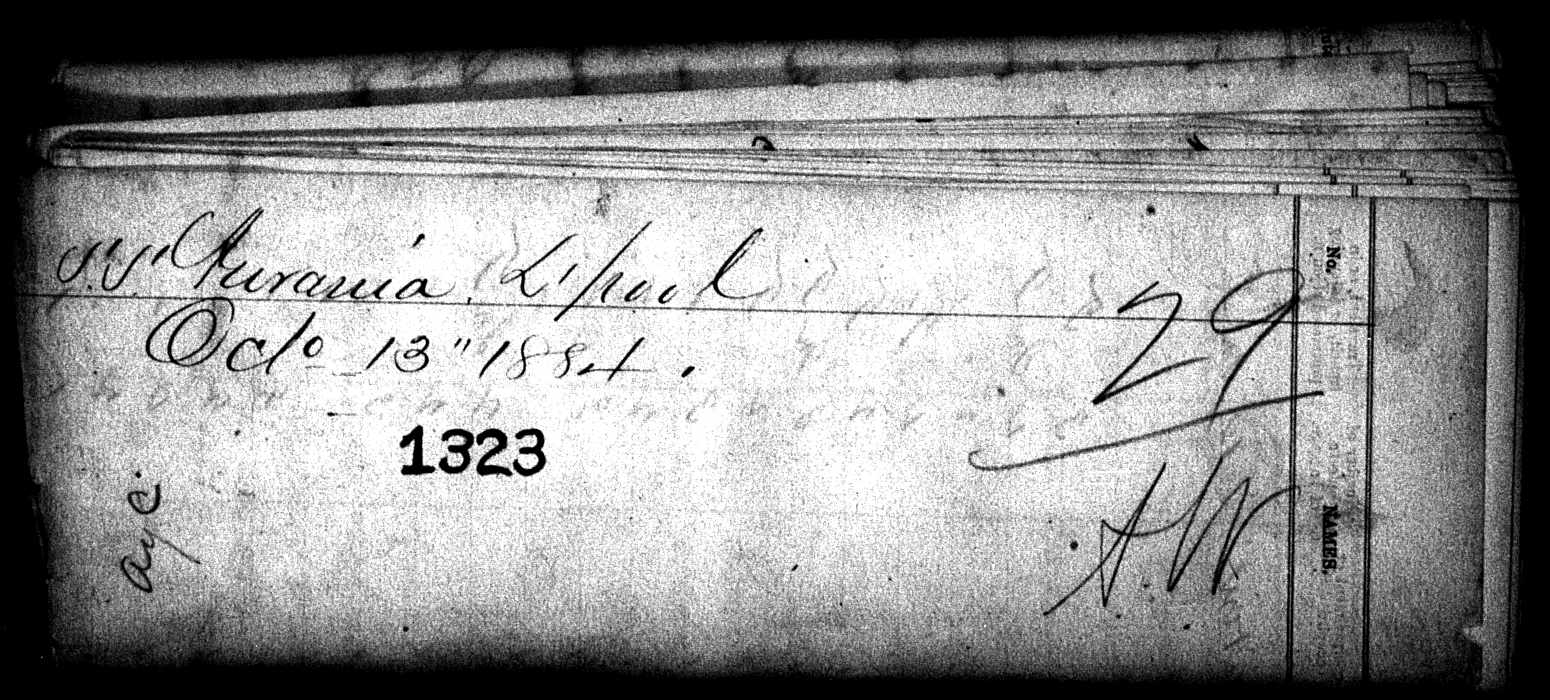 S.S. Aurania. L'pool
Octo 13" 1884.
1323
29
No.
NAMES.